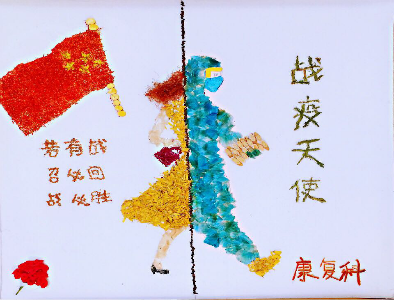 若有战
召必回
战必胜
战疫天使
康复科